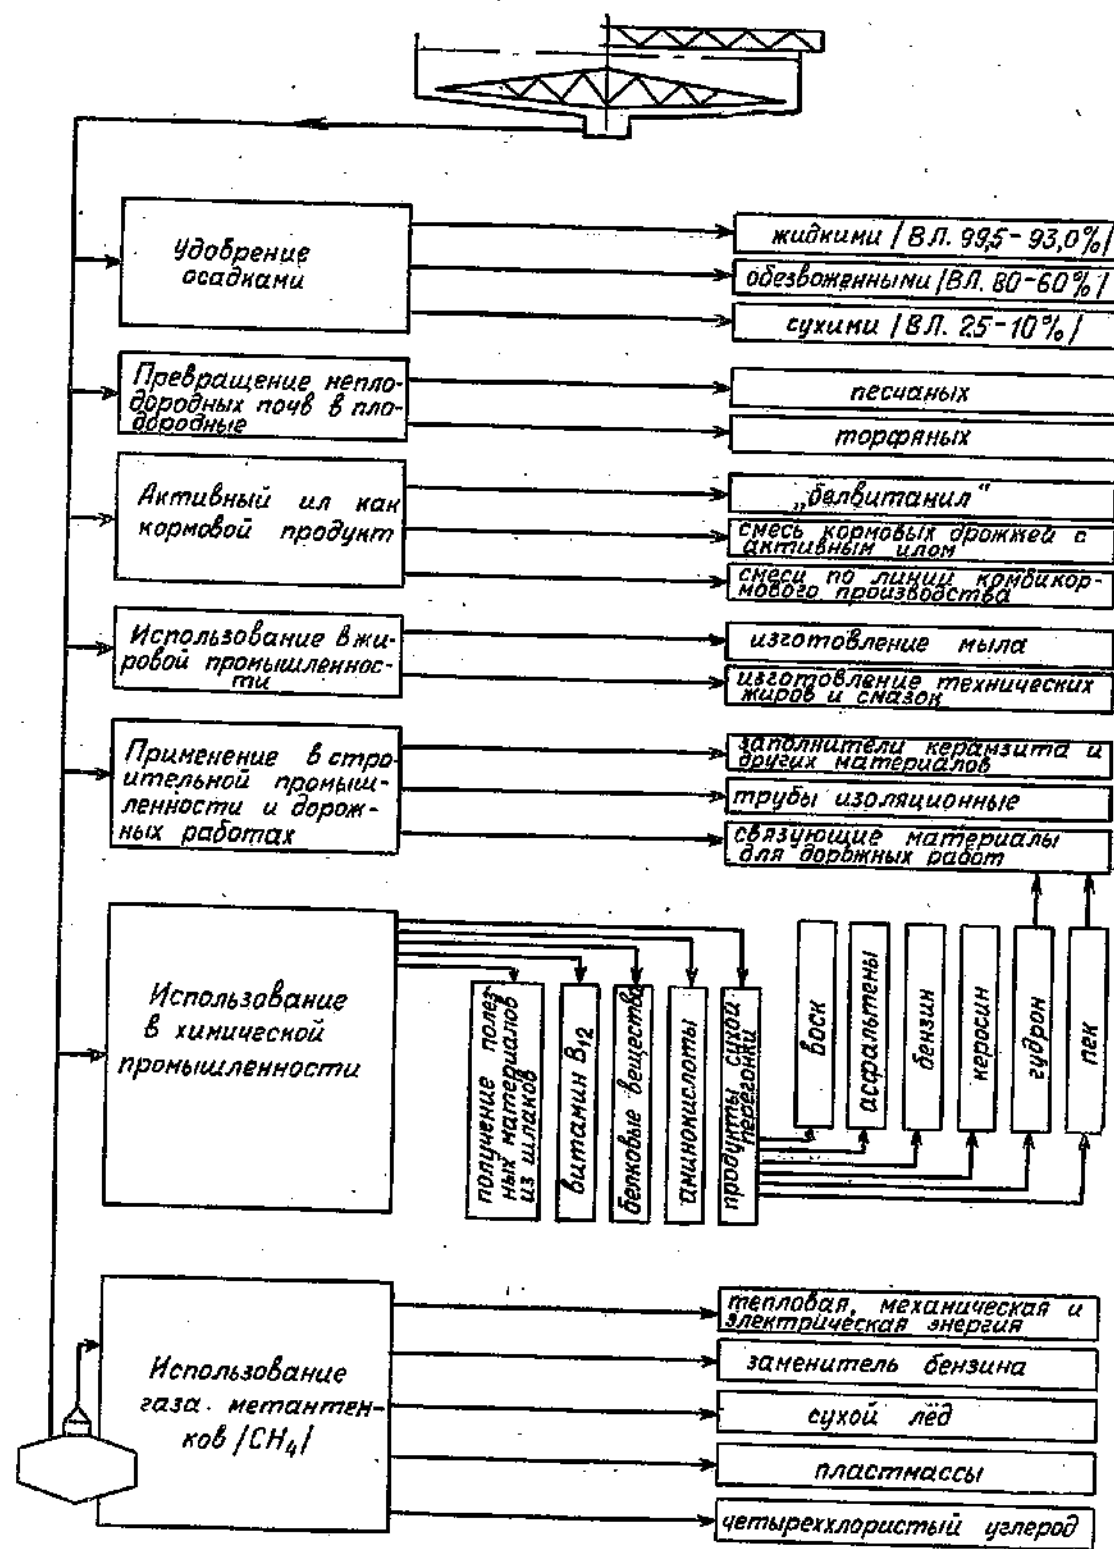 Удобрение
осадками
жидкими /ВЛ. 99,5-93,0%/
обезвоженными /ВЛ. 80-60%/
сухими /ВЛ. 25-10%/
Превращение непло-
дородных почв в пло-
дородные
песчаных
торфяных
Активный ил как
кормовой продукт
„белвитанил“
смесь кормовых дрожжей с
активным илом
смеси по линии комбикор-
мового производства
Использование в жи-
ровой промышленнос-
ти
изготовление мыла
изготовление технических
жиров и смазок
Применение в стро-
ительной промыш-
ленности и дорож-
ных работах
заполнители керамзита и
других материалов
трубы изоляционные
связующие материалы
для дорожных работ
Использование
в химической
промышленности
получение полез-
ных материалов
из шлаков
витамин В12
белковые вещества
аминокислоты
продукты сухой
перегонки
воск
асфальтены
бензин
керосин
гудрон
пек
Использование
газа метантен-
ков /CH4/
тепловая, механическая и
электрическая энергия
заменитель бензина
сухой лёд
пластмассы
четыреххлористый углерод